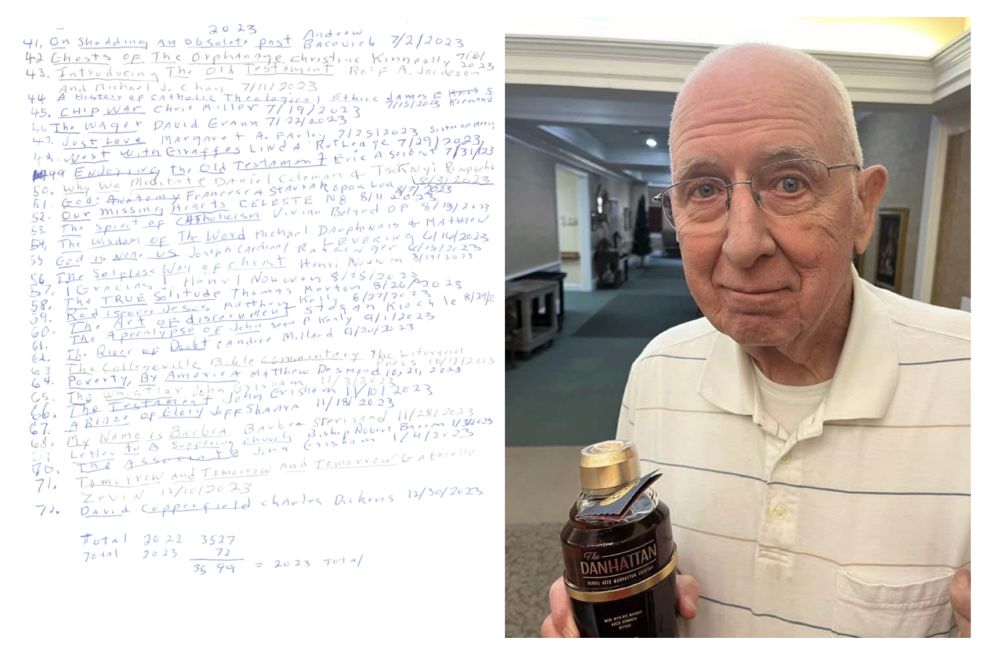 2023
41. On Shedding an obsolete past Andrew
Bacevich 7/2/2023
42 Ghosts of The Orphanage Christine Kenneally 7/6/
2023
43. Introducing The Old Testament Rolf A. Jacobson
And Michael J. Chan 7/11/2023
44 A History of Catholic Theological Ethics James F
7/15/2023 Keenan
45. CHIP WAR Chris Miller 7/19/2023
The Wager David Grann 7/22/2023
47. Just Love Margaret A. Farley 7/25/2023
48. West With Giraffes Lynda Rutledge 7/29/2023
49 Enjoying the Old Testament Eric A Seibert 7/31/23
50. Why We Meditate Daniel Goleman & Tsoknyi Rinpoche
51. God: Anatomy Francesca Stavrakopoulou 8/7/2023
52. Our missing Hearts CELESTE NG 8/11 2023
53. The spirit of Catholicism Vivian Boland OP 8/13/2023
54. The Wisdom of The Word Michael Dauphinais & Matthew
LEVERING
55. God is near us Joseph Cardinal Ratzinger
56. The Selfless Way of Christ Henri Nouwen 8/19/2023
57. Henri Nouwen 8/25/2023
58. The TRUE Solitude Thomas Merton 8/26/2023
59. Rediscover Jesus Matthew Kelly 8/27/2023
60. The Art of discernment Stefan Kiechle 8/29/
61. The Apocalypse of John Sean P Kealy 9/1/2023
62. The River of Doubt Candice Millard
63 The Collegeville Bible Commentary The Liturgical
Press
64. Poverty, By America Matthew Desmond 10/21, 2023
65. The Whistler John Grisham 11/3/2023
66. The Testament John Grisham 11/10/2023
67. A Blaze of Glory Jeff Shaara 11/18/2023
68. My Name is Barbra Barbra Streisand 11/28/2023
Letter to A Suffering Church Bishop Robert Barron
70. The John Grisham
71. Tomorrow and Tomorrow and Tomorrow Gabrielle
Zevin 12/10/2023
72. David Copperfield Charles Dickens 12/30/2023
Total 2022 3527
Total 2023 72
3599 = 2023 Total
The
DANHATTAN
BARREL AGED MANHATTAN COCKTAIL